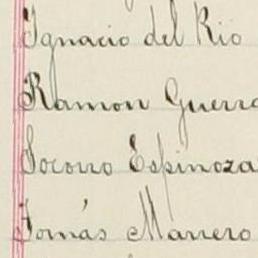 Ignacio del Rio
Ramon Guerra
Socorro Espinoza
Tomás Marrero